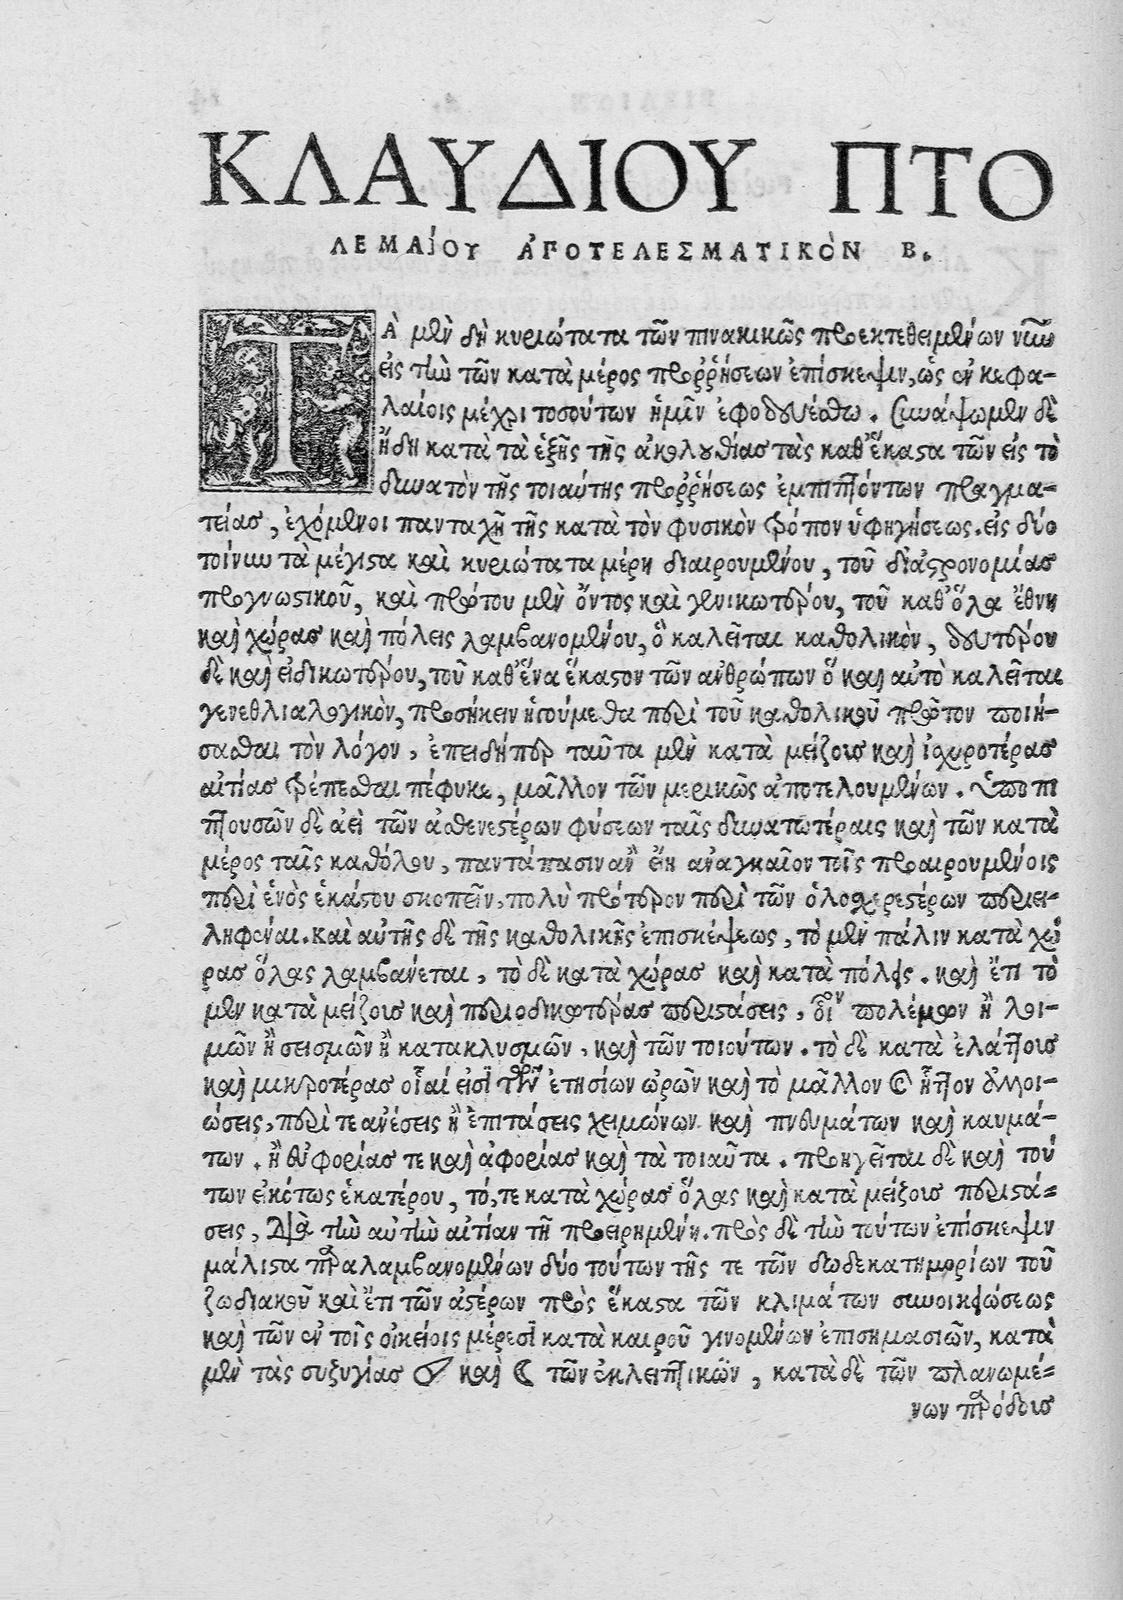 ΚΛΑΥΔΙΟΥ ΠΤΟ
ΛΕΜΑΊΟΥ ἈΠΟΤΕΛΕΣΜΑΤΙΚῸΝ Β.
ΤᾺ μὲν δὴ κυριώτατα τῶν πινακικῶς προεκτεθειμένων νῦν
εἰς τὴν τῶν κατὰ μέρος προῤῥήσεων ἐπίσκεψιν, ὡς ἐν κεφα-
λαίοις μέχρι τοσούτων ἡμῖν ἐφοδευέσθω. Συνάψωμεν δὲ
ἤδη κατὰ τὰ ἑξῆς τῆς ἀκολουθίας τὰς καθ᾽ ἕκαστα τῶν εἰς τὸ
δυνατὸν τῆς τοιαύτης προῤῥήσεως ἐμπιπτόντων πραγμα-
τείας, ἐχόμενοι πανταχῆ τῆς κατὰ τὸν φυσικὸν τρόπον ὑφηγήσεως. εἰς δύο
τοίνυν τὰ μέγιστα καὶ κυριώτατα μέρη διαιρουμένου, τοῦ δι᾽ ἀστρονομίας
προγνωστικοῦ, καὶ πρώτου μὲν ὄντος καὶ γενικωτέρου, τοῦ καθ᾽ ὅλα ἔθνη
καὶ χώρας καὶ πόλεις λαμβανομένου, ὃ καλεῖται καθολικὸν, δευτέρου
δὲ καὶ εἰδικωτέρου, τοῦ καθ᾽ ἕνα ἕκαστον τῶν ἀνθρώπων ὃ καὶ αὐτὸ καλεῖται
γενεθλιαλογικὸν, προσήκειν ἡγούμεθα περὶ τοῦ καθολικοῦ πρῶτον ποιή-
σασθαι τὸν λόγον, ἐπειδήπερ ταῦτα μὲν κατὰ μείζους καὶ ἰσχυροτέρας
αἰτίας τρέπεσθαι πέφυκε, μᾶλλον τῶν μερικῶς ἀποτελουμένων. Ὑποπι
πτουσῶν δὲ ἀεὶ τῶν ἀσθενεστέρων φύσεων ταῖς δυνατωτέραις καὶ τῶν κατὰ
μέρος ταῖς καθόλου, παντάπασιν ἂν εἴη ἀναγκαῖον τοῖς προαιρουμένοις
περὶ ἑνὸς ἑκάστου σκοπεῖν, πολὺ πρότερον περὶ τῶν ὁλοσχερεστέρων περιει-
ληφέναι. καὶ αὐτῆς δὲ τῆς καθολικῆς ἐπισκέψεως, τὸ μὲν πάλιν κατὰ χώ
ρας ὅλας λαμβάνεται, τὸ δὲ κατὰ χώρας καὶ κατὰ πόλεις. καὶ ἔτι τὸ
μὲν κατὰ μείζους καὶ περιοδικωτέρας περιστάσεις, οἷον πολέμων ἢ λοι-
μῶν ἢ σεισμῶν ἢ κατακλυσμῶν, καὶ τῶν τοιούτων. τὸ δὲ κατὰ ἐλάττους
καὶ μικροτέρας οἷαί εἰσι τῶν ἐτησίων ὡρῶν καὶ τὸ μᾶλλον καὶ ἧττον ἀλλοι-
ώσεις, περί τε ἀνέσεις ἢ ἐπιτάσεις χειμώνων καὶ πνευμάτων καὶ καυμά-
των. ἢ εὐφορίας τε καὶ ἀφορίας καὶ τὰ τοιαῦτα. προηγεῖται δὲ καὶ τού
των εἰκότως ἑκατέρου, τό, τε κατὰ χώρας ὅλας καὶ κατὰ μείζους περιστά-
σεις, διὰ τὴν αὐτὴν αἰτίαν τῇ προειρημένῃ. πρὸς δὲ τὴν τούτων ἐπίσκεψιν
μάλιστα παραλαμβανομένων δύο τούτων τῆς τε τῶν δωδεκατημορίων τοῦ
ζωδιακοῦ καὶ ἔτι τῶν ἀστέρων πρὸς ἕκαστα τῶν κλιμάτων συνοικειώσεως
καὶ τῶν ἐν τοῖς οἰκείοις μέρεσι κατὰ καιροῦ γινομένων ἐπισημασιῶν, κατὰ
μὲν τὰς συζυγίας ☉ καὶ ☾ τῶν ἐκλειπτικῶν, κατὰ δὲ τῶν πλανωμέ-
νων παρόδους